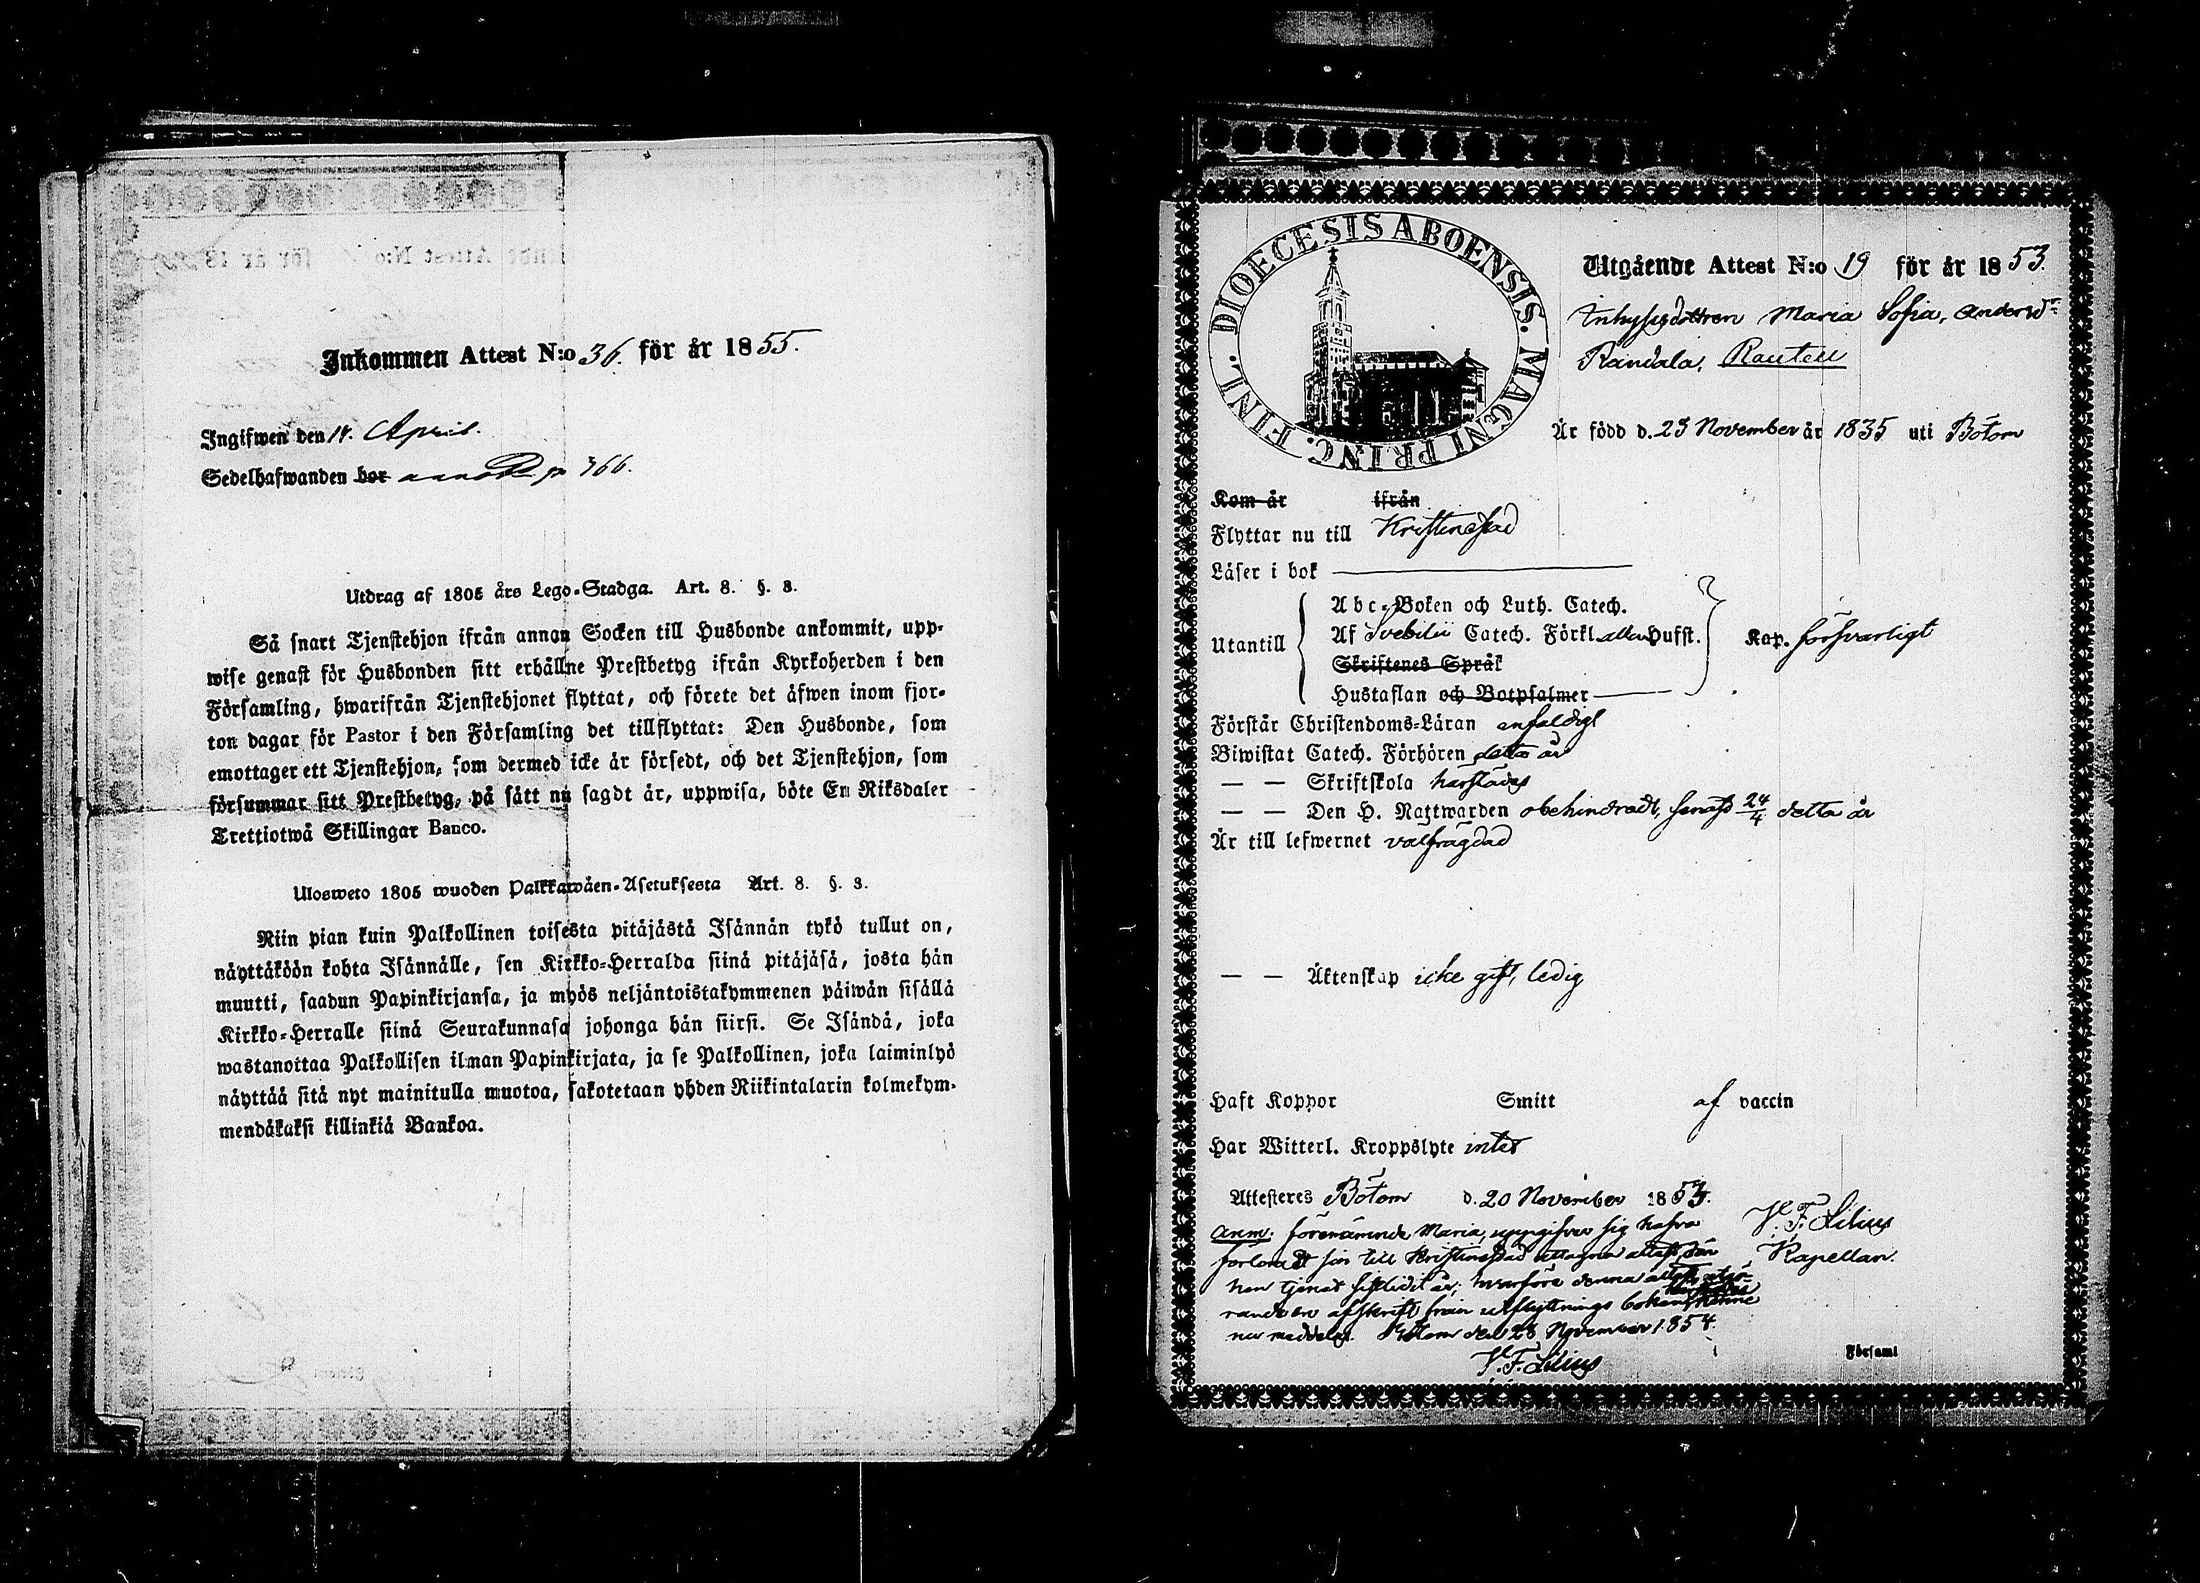 Inkommen Attest N:o 36. för år 1855.
Ingifwen den 14. April.
Sedelhafwanden bor p 366.
Utdrag af 1805 års Lego-Stadga. Art. 8. §. 3.
Så snart Tjenstehjon ifrån annan Socken till Husbonde ankommit, upp-
wise genast för Husbonden sitt erhållne Prestbetyg ifrån Kyrkoherden i den
Församling, hwarifrån Tjenstehjonet flyttat, och förete det äfwen inom fjor-
ton dagar för Pastor i den Församling det tillflyttat: Den Husbonde, som
emottager ett Tjenstehjon, som dermed icke är försedt, och det Tjenstehjon, som
försummar sitt Prestbetyg, på sätt nu sagdt är, uppwisa, böte En Riksdaler
Trettiotwå Skillingar Banco.
Ulosweto 1805 wuoden Palkkawäen-Asetuksesta Art. 8. §. 3.
Niin pian kuin Palkollinen toisesta pitäjästä Isännän tykö tullut on,
näyttäköön kohta Isännälle, sen Kirkko-Herralda siinä pitäjäsä, josta hän
muutti, saadun Papinkirjansa, ja myös neljäntoistakymmenen päiwän sisällä
Kirkko-Herralle siinä Seurakunnasa johonga hän siirsi. Se Isändä, joka
wastanottaa Palkollisen ilman Papinkirjata, ja se Palkollinen, joka laiminlyö
näyttää sitä nyt mainitulla muotoa, sakotetaan yhden Riikintalarin kolmekym-
mendäkaksi killinkiä Bankoa.
FINL. DIOECESIS ABOENSIS. MAGNI PRINC.
Utgående Attest N:o 19 för år 1853.
Inhysesdottren Maria Sofia, Andersdr
Randala, Rauten
Är född d. 23 November år 1835 uti Bötom
Kom år ifrån
Flyttar nu till Kristinestad
Läser i bok
Utantill
Abc-Boken och Luth. Catech.
Af Svebilii Catech. Förkl. allen Hufst.
Skriftenes Språk
Hustaflan och Botpsalmer
Kap. försvarligt
Förstår Christendoms-Läran enfaldigt
Biwistat Catech. Förhören detta år
— — Skriftskola härstädes
— — Den H. Nattwarden obehindradt, senast 24/4 detta år
Är till lefwernet välfrägdad
— — Äktenskap icke gift, ledig
Haft Koppor Smitt af vaccin
Har Witterl. Kroppslyte intet
Attesteres Bötom d. 20 November 1853.
V. F. Lilius
Kapellan.
Anm: förenämnde Maria, uppgifver sig hafva
förlorat sin till Kristinestad uttagna attest, där
hon tjenat sistlidet år, hvarföre denna attest, utgö-
rande en afskrift från utflyttnings boken, henne
nu meddelas. Bötom den 28 November 1854.
V. F. Lilius
Församl